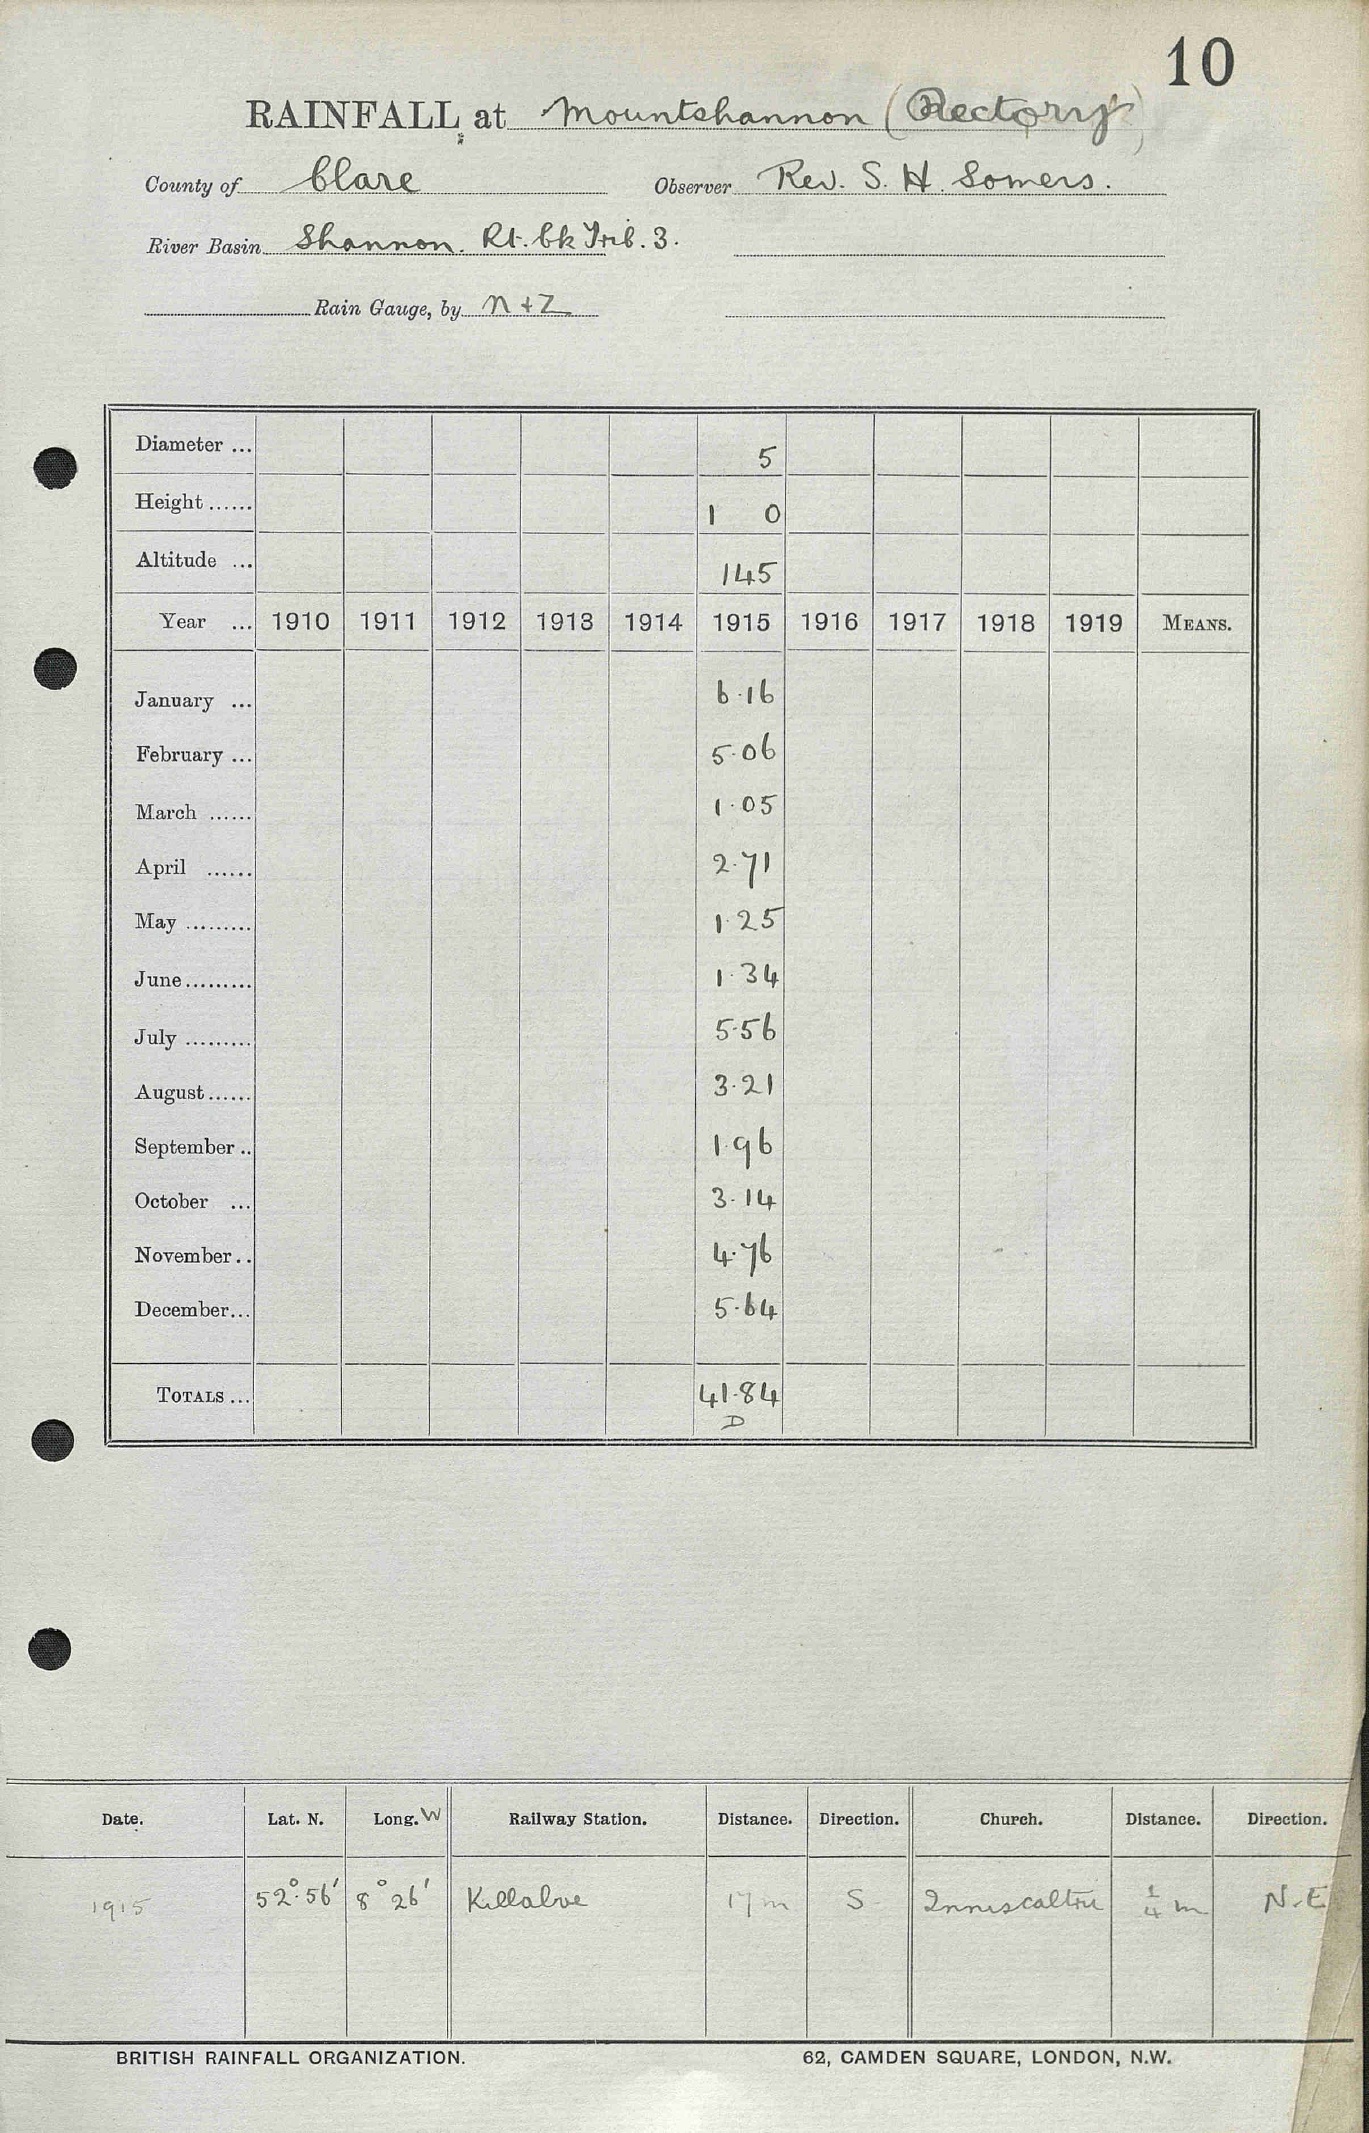 10
RAINFALL at Mountshannon (Rectory)
County of Clare Observer Rev. S. H. Somers.
River Basin Shannon. Rt. bk Trib. 3.
Rain Gauge, by N + Z
Diameter ... 5
Height ...... 1 0
Altitude ... 145
Year ... 1910 1911 1912 1913 1914 1915 1916 1917 1918 1919 MEANS.
January ... 6.16
February ... 5.06
March ...... 1.05
April ...... 2.71
May ......... 1.25
June ......... 1.34
July ......... 5.56
August ...... 3.21
September .. 1.96
October ... 3.14
November .. 4.76
December ... 5.64
TOTALS ... 41.84
D
Date. Lat. N. Long. W Railway Station. Distance. Direction. Church. Distance. Direction.
1915 52° 56' 8° 26' Killaloe 17 m S Inniscaltri 1/4 m N.E
BRITISH RAINFALL ORGANIZATION. 62, CAMDEN SQUARE, LONDON, N.W.